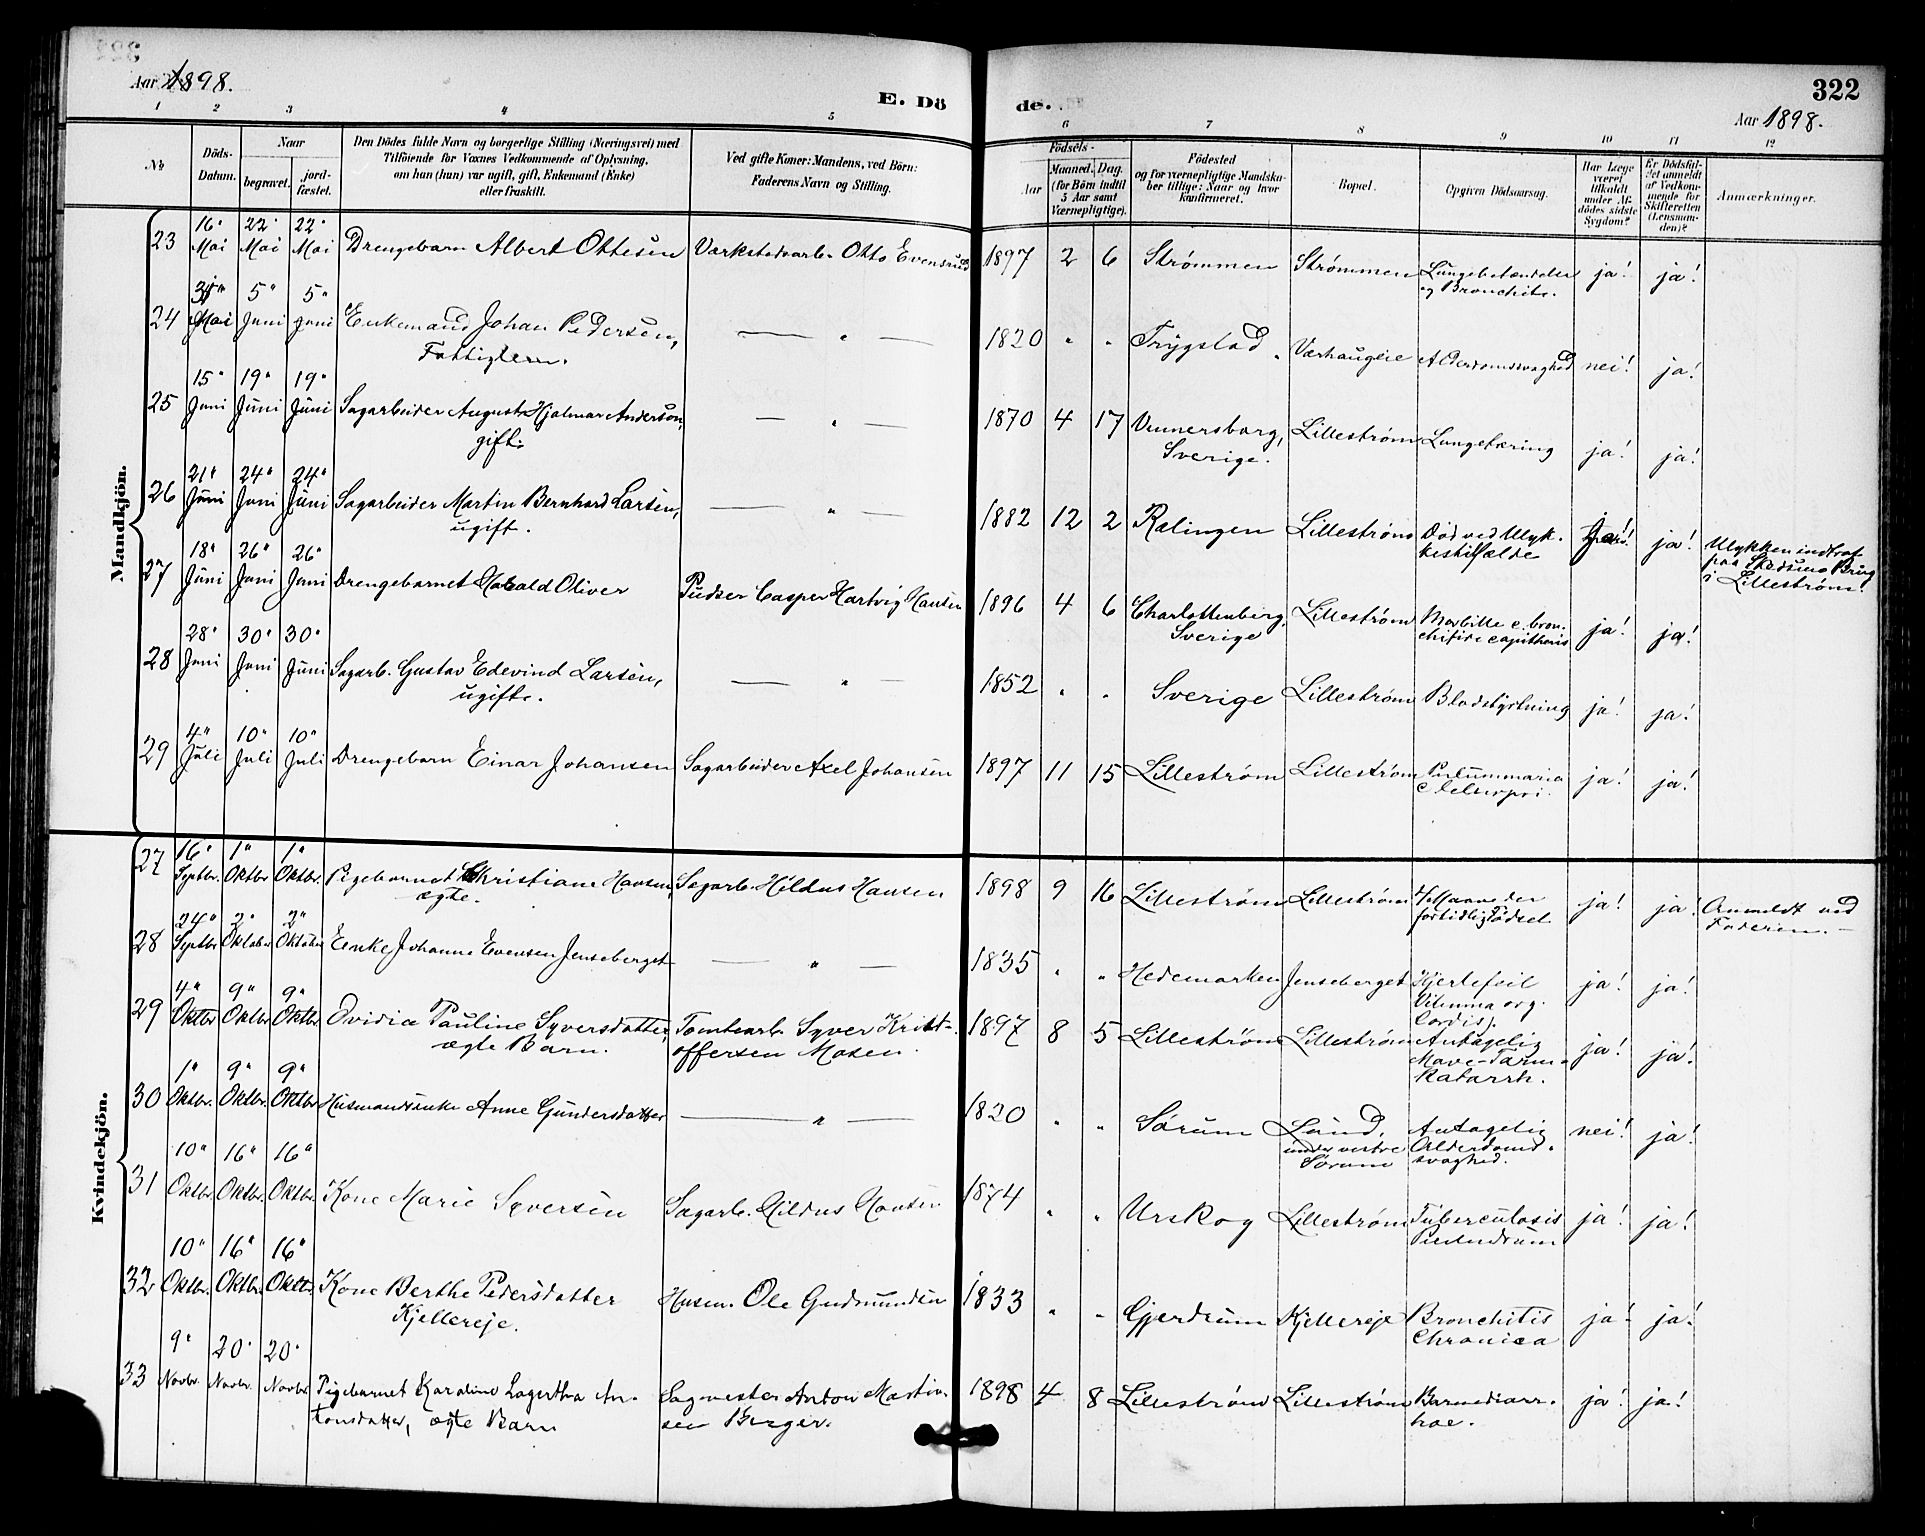 Aar 1898.
E. Dö
de.
322
Aar 1898.
1 2 3 4 5 6 7 8 9 10 11 12
No
Döds-
Datum.
Naar
begravet.
jord-
fæstet.
Den Dödes fulde Navn og borgerlige Stilling (Næringsvei) med
Tilföiende for Voxnes Vedkommende af Oplysning,
om han (hun) var ugift, gift, Enkemand (Enke)
eller fraskilt.
Ved gifte Koner: Mandens, ved Börn:
Faderens Navn og Stilling.
Födsels-
Aar
Maaned. Dag.
(for Börn indtil
5 Aar samt
Værnepligtige).
Födested
og for værnepligtige Mandska-
ber tillige: Naar og hvor
konfirmeret.
Bopæl.
Opgiven Dödsaarsag.
Har Læge
været
tilkaldt
under Af-
dödes sidste
Sygdom?
Er Dödsfal-
det anmeldt
af Vedkom-
mende for
Skifteretten
(Lensman-
den)?
Anmærkninger.
Mandkjön.
23 16' Mai 22' Mai 22' Mai Drengebarn Albert Ottesen Værkstedarb. Otto Evensrud 1897 2 6 Strømmen Strømmen Lungebetændelse ja! ja!
og Bronchite.
24 31" Mai 5" Juni 5" Juni Enkemand Johan Pedersen, — " — 1820 " " Trygstad Værhaugeie Alderdomsvaghed nei! ja!
Fattiglem.
25 15" Juni 19" Juni 19" Juni Sagarbeider August Hjalmar Anderson, — " — 1870 4 17 Vennersborg, Lillestrøm Lungetæring ja! ja!
gift. Sverige.
26 21" Juni 24" Juni 24" Juni Sagarbeider Martin Bernhard Larsen, — " — 1882 12 2 Rælingen Lillestrøm Død ved Ulyk- ja! ja! Ulykken indtraf
ugift. kestilfælde paa Skedsmo Brug
i Lillestrøm.
27 18" Juni 26" Juni 26" Juni Drengebarnet Harald Oliver Pudser Casper Hartvig Hansen 1896 4 6 Charlottenberg, Lillestrøm ja! ja!
Sverige
28 28" Juni 30" Juni 30" Juni Sagarb. Gustav Edevind Larsen, — " — 1852 " " Sverige Lillestrøm Blodstyrtning ja! ja!
ugift.
29 4" Juli 10" Juli 10" Juli Drengebarn Einar Johansen Sagarbeider Axel Johansen 1897 11 15 Lillestrøm Lillestrøm ja! ja!
Kvindekjön.
27 16" Septbr. 1" Oktbr. 1" Oktbr. Pigebarnet Kristiane Hansen, Sagarb. Hildus Hansen 1898 9 16 Lillestrøm Lillestrøm 4 Maaneder ja! ja! Anmeldt ved
ægte. fortidlig Födsel Faderen. —
28 24" Septbr 2" Oktober 2" Oktober Enke Johanne Evensen Jenseberget — " — 1835 " " Hedemarken Jenseberget Hjertefeil ja! ja!
org.
Cordis).
29 4" Oktbr 9" Oktbr 9" Oktbr Ovidia Pauline Syversdatter, Tomtearb. Syver Krist- 1897 8 5 Lillestrøm Lillestrøm Antagelig ja! ja!
ægte Barn. offersen Mosen. Mave-Tarm-
Katarrh.
30 1" Oktbr. 9" Oktbr. 9" Oktbr Husmandsenke Anne Gundersdatter — " — 1820 " " Sörum Lund, Antagelig nei! ja!
under vestre Alderdoms-
Sörum svaghed.
31 10" Oktbr. 16" Oktbr. 16" Oktbr. Kone Marie Syversen Sagarb. Hildus Hansen 1874 " " Urskog Lillestrøm Tuberculosis ja! ja!
32 10" Oktbr. 16" Oktbr. 16" Oktbr. Kone Berthe Pedersdatter Husm. Ole Gudmundsen 1833 " " Gjerdrum Kjellereje Bronchitis ja! ja!
Kjellereje. Chronica
33 9" Novbr. 20" Novbr. 20" Novbr Pigebarnet Karoline Lagertha An- Sagmester Anton Martin- 1898 4 8 Lillestrøm Lillestrøm Barnediarr- ja! ja!
tonsdatter, ægte Barn sen Berger. hoe.